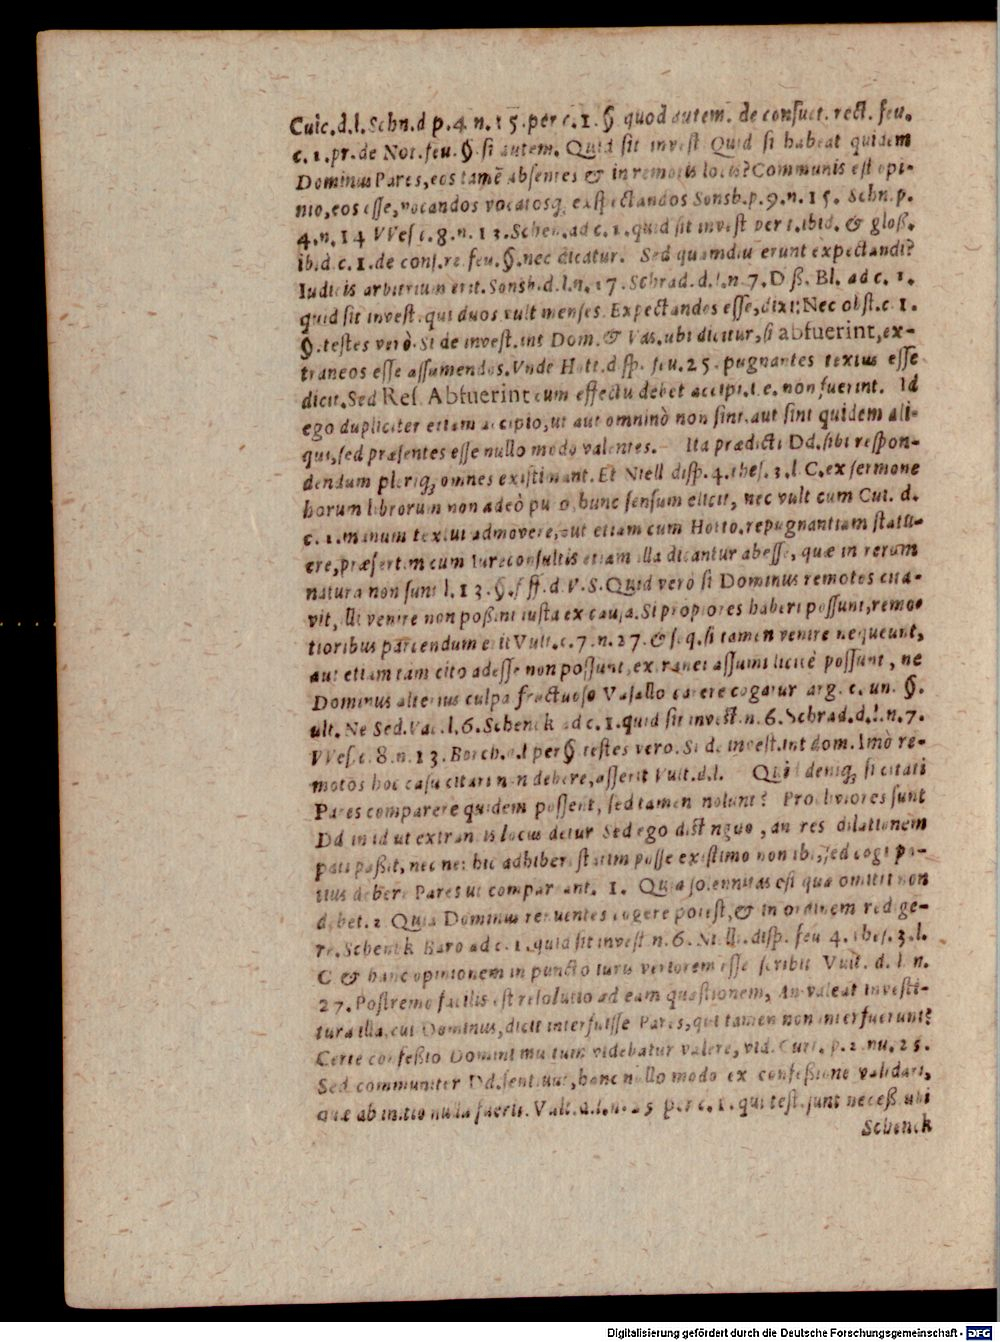 Cuic.d.l.Schn.d p.4.n.15.per c.1.§ quod autem. de consuet. rect. feu.
c.1.pr.de Not.feu.§.si autem. Quid sit invest Quid si habeat quidem
Dominus Pares,eos tamē absentes & in remotis locis?Communis est opi-
nio,eos esse,vocandos vocatosq; exspectandos Sonsb.p.9.n.15. Schn.p.
4.n.14 VVes c.8.n.13.Schen.ad c.1.quid sit invest per t.ibid. & gloß.
ib.d.c.1.de cons.re.feu.§.nec dicatur. Sed quamdiu erunt expectandi?
Iudicis arbitrium erit.Sonsb.d.l.n.17.Schrad.d.l.n.7.Diß.Bl. ad c.1.
quid sit invest.qui duos vult menses. Expectandos esse,dixi:Nec obst.c.1.
§.testes verò.Si de invest.int Dom.& Vas.ubi dicitur,si abfuerint,ex-
traneos esse assumendos.Vnde Hott.disp.feu.25.pugnantes textus esse
dicit.Sed Res. Abfuerint cum effectu debet accipi.i.e. non fuerint. Id
ego dupliciter etiam accipio,ut aut omninò non sint,aut sint quidem ali-
qui,sed præsentes esse nullo modo valentes. Ita prædicti Dd.sibi respon-
dendum pleriq; omnes existimant. Et Niell disp.4.thes.3.l.C.ex sermone
horum librorum non adeò puro,hunc sensum elicit, nec vult cum Cui. d.
c.1.manum textui admovere,aut etiam cum Hotto.repugnantiam statu-
ere,præsertim cum Iureconsultis etiam illa dicantur abesse, quæ in rerum
natura non sunt l.13.§.f ff.d.V.S.Quid verò si Dominus remotos cita-
vit,illi venire non poßint iusta ex causa.Si propiores haberi possunt,remo-
tioribus parcendum erit Vult.c.7.n.27.& seq.si tamen venire nequeunt,
aut etiam tam cito adesse non possunt,extranei assumi licitè possunt, ne
Dominus alterius culpa fructuoso Vasallo carere cogatur arg. c. un. §.
ult. Ne Sed.Vac.l.6.Schenck ad c.1.quid sit invest.n.6.Schrad.d.l.n.7.
VVes.c.8.n.13.Borch.d.l per § testes vero. Si de invest.int dom.Imò re-
motos hoc casu citari non debere,asserit Vult.d.l. Quid deniq; si citati
Pares comparere quidem possent, sed tamen nolunt? Procliviores sunt
Dd in id ut extraneis locus detur Sed ego distinguo, an res dilationem
pati poßit,nec ne: hic adhiberi statim posse existimo non ibi,sed cogi po-
tius debere Pares ut compareant. 1. Quia solennitas est qua omitti non
debet.2 Quia Dominus renuentes cogere potest,& in ordinem redige-
re.Schenck Baro ad c.1.quid sit invest n.6.Niell.disp. feu 4. thes.3.l.
C & hanc opinionem in puncto iuris veriorem esse scribit Vult. d. l. n.
27.Postremo facilis est resolutio ad eam quæstionem, An valeat investi-
tura illa,cui Dominus,dicit interfuisse Pares,qui tamen non interfuerunt?
Certe confeßio Domini multum videbatur valere, vid.Curt. p.2.nu.25.
Sed communiter Dd.sentiunt,hanc nullo modo ex confeßione validari,
quæ ab initio nulla fuerit. Vult.d.l.n.25 per c.1.qui test.sunt neceß.ubi
Schenck
Digitalisierung gefördert durch die Deutsche Forschungsgemeinschaft - DFG